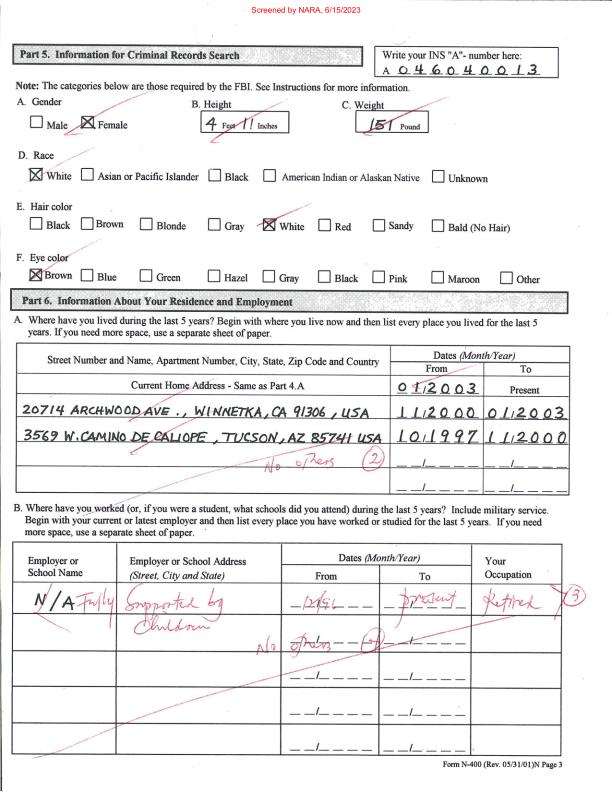 Screened by NARA, 6/15/2023
Part 5. Information for Criminal Records Search
Write your INS "A"- number here:
A 0 4 6 0 4 0 0 1 3
Note: The categories below are those required by the FBI. See Instructions for more information.
A. Gender B. Height C. Weight
Male Female 4 Feet 11 Inches 151 Pound
D. Race
White Asian or Pacific Islander Black American Indian or Alaskan Native Unknown
E. Hair color
Black Brown Blonde Gray White Red Sandy Bald (No Hair)
F. Eye color
Brown Blue Green Hazel Gray Black Pink Maroon Other
Part 6. Information About Your Residence and Employment
A. Where have you lived during the last 5 years? Begin with where you live now and then list every place you lived for the last 5
years. If you need more space, use a separate sheet of paper.
Street Number and Name, Apartment Number, City, State, Zip Code and Country
Dates (Month/Year)
From To
Current Home Address - Same as Part 4.A 01/2003 Present
20714 ARCHWOOD AVE., WINNETKA, CA 91306, USA 11/2000 01/2003
3569 W. CAMINO DE CALIOPE, TUCSON, AZ 85741 USA 10/1997 11/2000
No others 2
B. Where have you worked (or, if you were a student, what schools did you attend) during the last 5 years? Include military service.
Begin with your current or latest employer and then list every place you have worked or studied for the last 5 years. If you need
more space, use a separate sheet of paper.
Employer or
School Name
Employer or School Address
(Street, City and State)
Dates (Month/Year)
From To
Your
Occupation
N/A Fully Supported by present Retired 3
Children
No others
Form N-400 (Rev. 05/31/01)N Page 3